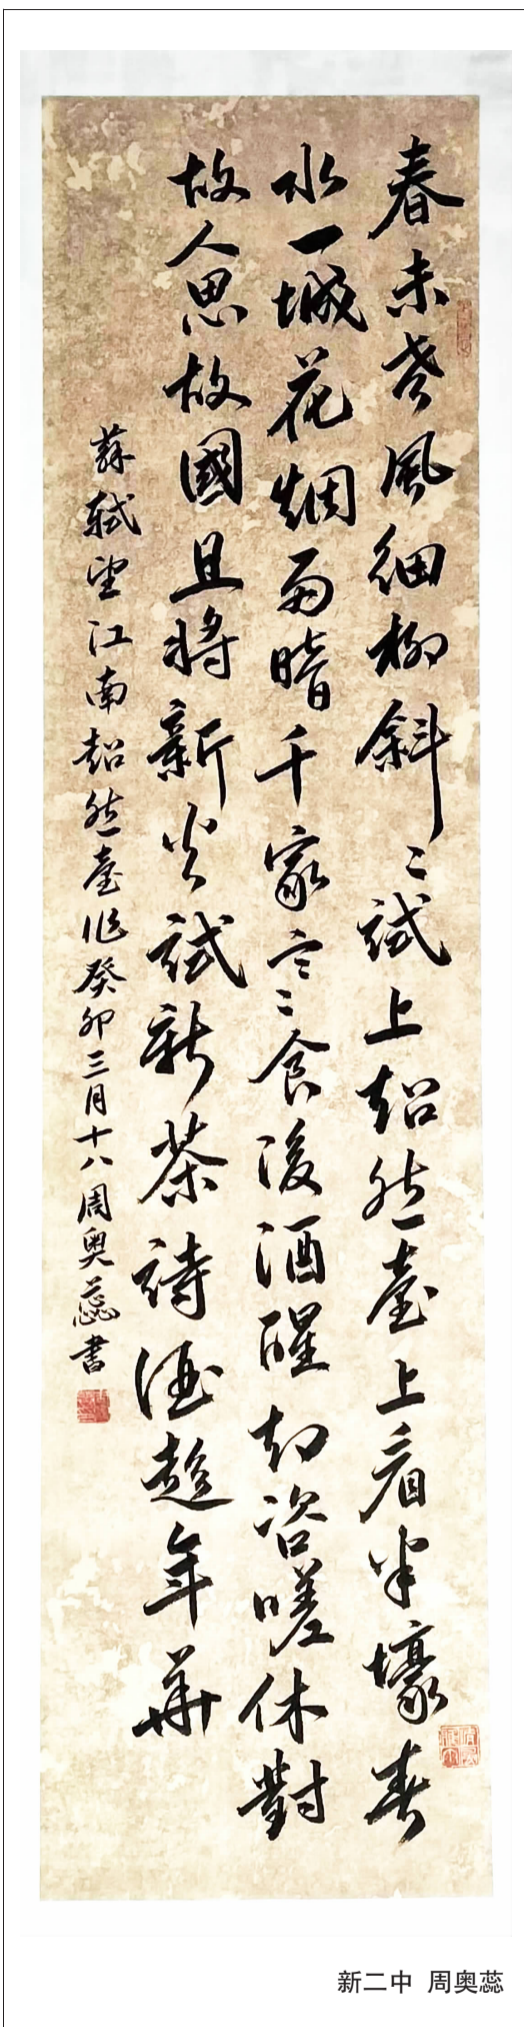 春未老風細柳斜〻試上超然臺上看半壕春
水一城花烟雨暗千家寒食後酒醒却咨嗟休對
故人思故國且將新火試新茶詩酒趁年華
蘇軾望江南超然臺作癸卯三月十八周奥蕊書
新二中 周奥蕊